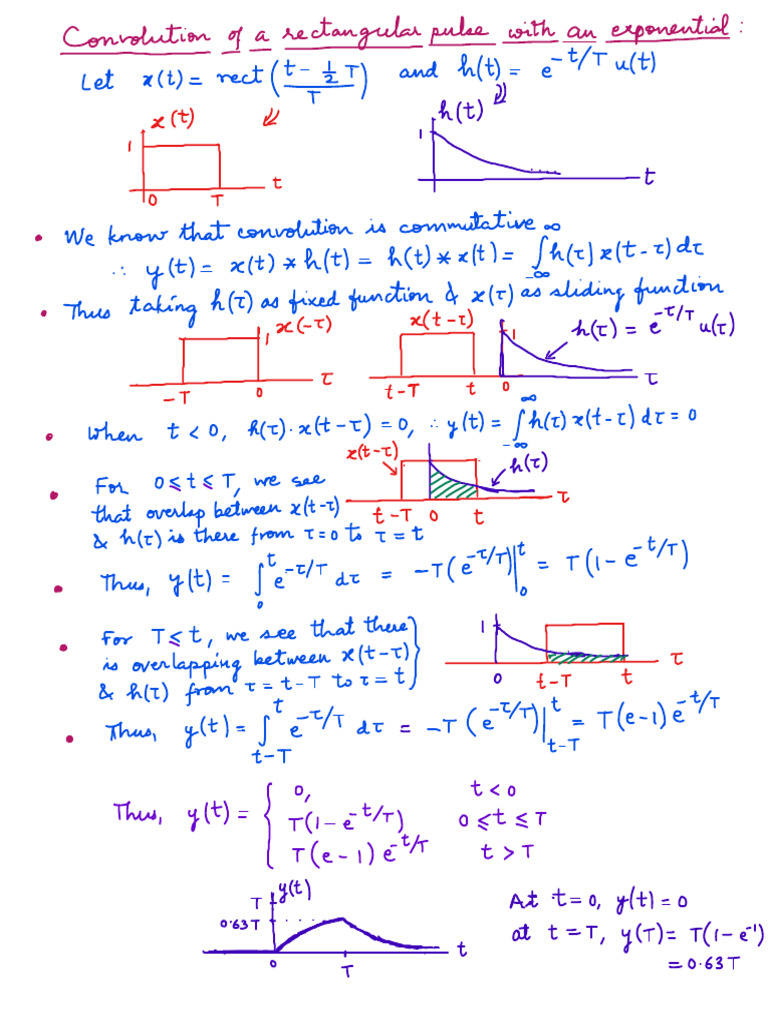 Convolution of a rectangular pulse with an exponential:
Let x(t) = rect((t - 1/2 T)/T) and h(t) = e^{-t/T} u(t)
x(t)
1
0 T t
h(t)
1
t
• We know that convolution is commutative
∴ y(t) = x(t) * h(t) = h(t) * x(t) = ∫_{-∞}^{∞} h(τ) x(t-τ) dτ
• Thus taking h(τ) as fixed function & x(τ) as sliding function
x(-τ)
1
-T 0 τ
x(t-τ)
1
h(τ) = e^{-τ/T} u(τ)
t-T t 0 τ
• When t < 0, h(τ)·x(t-τ) = 0, ∴ y(t) = ∫_{-∞}^{∞} h(τ) x(t-τ) dτ = 0
• For 0 ⩽ t ⩽ T, we see
that overlap between x(t-τ)
& h(τ) is there from τ=0 to τ=t
x(t-τ)
h(τ)
t-T 0 t τ
• Thus, y(t) = ∫_0^t e^{-τ/T} dτ = -T(e^{-τ/T})|_0^t = T(1-e^{-t/T})
• For T ⩽ t, we see that there
is overlapping between x(t-τ)
& h(τ) from τ = t-T to τ = t
1
0 t-T t τ
• Thus, y(t) = ∫_{t-T}^t e^{-τ/T} dτ = -T(e^{-τ/T})|_{t-T}^t = T(e-1) e^{-t/T}
Thus, y(t) = {
0, t < 0
T(1-e^{-t/T}) 0 ⩽ t ⩽ T
T(e-1) e^{-t/T} t > T
y(t)
T
0.63T
0 T t
At t=0, y(t) = 0
at t = T, y(T) = T(1-e^{-1})
= 0.63T